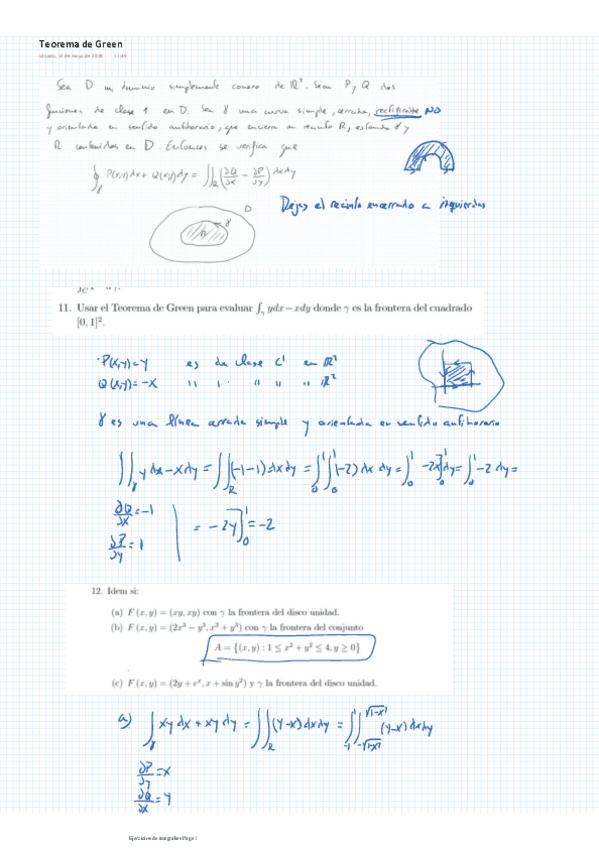 Teorema de Green
sábado, de mayo de 11:49
Sea D un dominio simplemente conexo de ℝ². Sean P y Q dos
funciones de clase 1 en D. Sea γ una curva simple, cerrada, rectificable NO
y orientada en sentido antihorario, que encierra un recinto R, estando γ y
R contenidos en D. Entonces se verifica que
∮_γ P(x,y)dx + Q(x,y)dy = ∬_R (∂Q/∂x − ∂P/∂y) dxdy
Dejas el recinto encerrado a izquierdas
D
γ
R
11. Usar el Teorema de Green para evaluar ∫_γ ydx − xdy donde γ es la frontera del cuadrado
[0, 1]².
P(x,y)=y es de clase C¹ en ℝ²
Q(x,y)=−x " " " " " ℝ²
γ es una línea cerrada simple y orientada en sentido antihorario
∬_γ y dx − x dy = ∬_R (−1−1) dx dy = ∫_0^1 ∫_0^1 (−2) dx dy = ∫_0^1 −2x]_0^1 dy = ∫_0^1 −2 dy =
∂Q/∂x = −1
= −2y]_0^1 = −2
∂P/∂y = 1
12. Idem si:
(a) F(x, y) = (xy, xy) con γ la frontera del disco unidad.
(b) F(x, y) = (2x³ − y³, x³ + y³) con γ la frontera del conjunto
A = {(x, y) : 1 ≤ x² + y² ≤ 4, y ≥ 0}
(c) F(x, y) = (2y + eˣ, x + sin y²) y γ la frontera del disco unidad.
a) ∫_γ xy dx + xy dy = ∬_R (y−x) dx dy = ∫_{-1}^{1} ∫_{-√(1-x²)}^{√(1-x²)} (y−x) dx dy
∂P/∂y = x
∂Q/∂x = y
Ejercicios de integrales Page 1